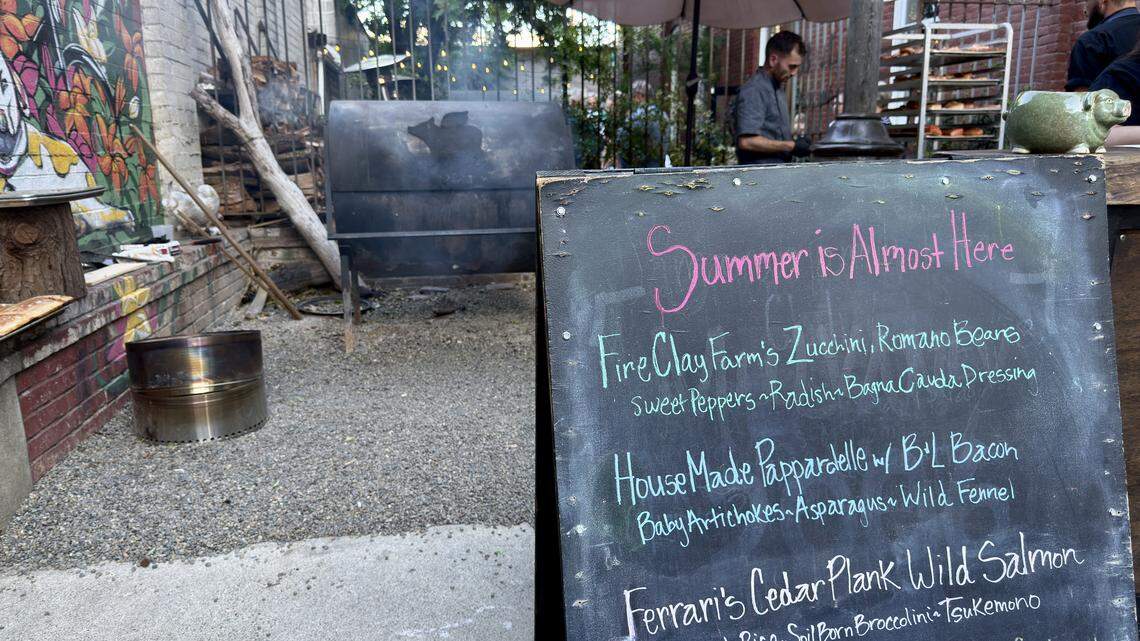 Summer is Almost Here
Fire Clay Farm's Zucchini, Romano Beans
Sweet Peppers ~ Radish ~ Bagna Cauda Dressing
House Made Pappardelle w/ B&L Bacon
Baby Artichokes ~ Asparagus ~ Wild Fennel
Ferrari's Cedar Plank Wild Salmon
Rice ~ Soil Born Broccolini ~ Tsukemono